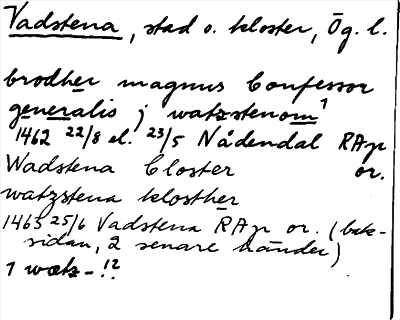 Vadstena, stad o. kloster, Ög. l.
brodher magnus Confessor
generalis j watzstenom¹
1462 22/8 el. 23/5 Nådendal RAp or.
Wadstena Closter
watzstena klosther
1465 25/6 Vadstena RAp or. (bak-
sidan, 2 senare händer)
1 watz- !?